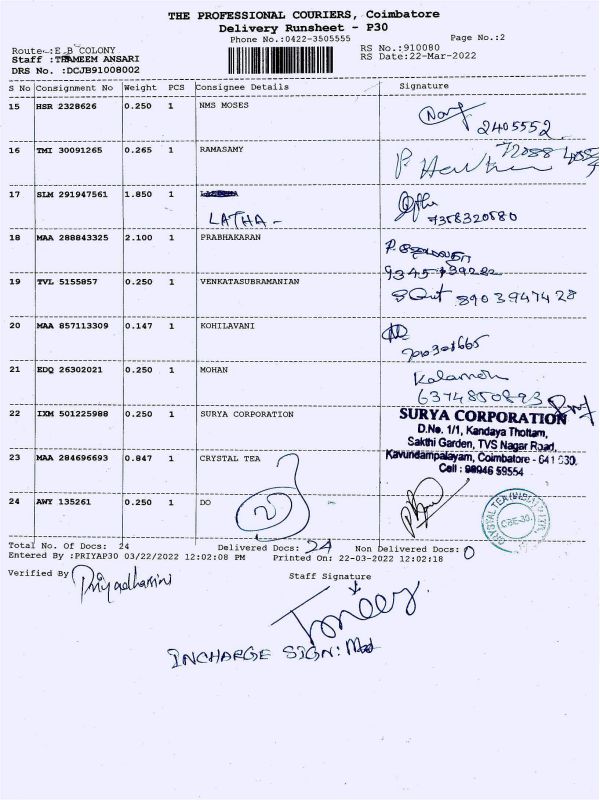 THE PROFESSIONAL COURIERS, Coimbatore
Delivery Runsheet - P30
Phone No.:0422-3505555 Page No.:2
Route-:E B COLONY RS No.:910080
Staff :THAMEEM ANSARI RS Date:22-Mar-2022
DRS No. :DCJB91008002
S No Consignment No Weight PCS Consignee Details Signature
15 HSR 2328626 0.250 1 NMS MOSES
2405552
16 TMI 30091265 0.265 1 RAMASAMY
17 SLM 291947561 1.850 1
LATHA - 7358320580
18 MAA 288843325 2.100 1 PRABHAKARAN
19 TVL 5155857 0.250 1 VENKATASUBRAMANIAN
8903947428
20 MAA 857113309 0.147 1 KOHILAVANI
21 EDQ 26302021 0.250 1 MOHAN
6374850893
22 IXM 501225988 0.250 1 SURYA CORPORATION
SURYA CORPORATION
D.No. 1/1, Kandaya Thottam,
Sakthi Garden, TVS Nagar Road,
Kavundampalayam, Coimbatore - 641 030.
Cell : 98946 59554
23 MAA 284696693 0.847 1 CRYSTAL TEA
24 AWY 135261 0.250 1 DO
CBE-30.
Total No. Of Docs: 24 Delivered Docs: 24 Non Delivered Docs: 0
Entered By :PRIYAP30 03/22/2022 12:02:08 PM Printed On: 22-03-2022 12:02:18
Verified By Priyadharsini Staff Signature
INCHARGE SIGN: